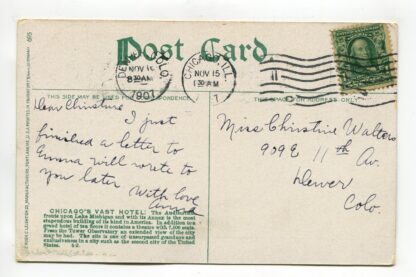 Post Card.
THIS SIDE MAY BE USED FOR CORRESPONDENCE.
THIS SPACE FOR ADDRESS ONLY.
COLO.
NOV 15
830AM
1907
CHICAGO, ILL.
NOV 15
1 30 AM
Dear Christine
I just
finished a letter to
Emma will write to
you later
With love
Anna
Miss Christine Walters
909 E 11th Av.
Denver
Colo.
CHICAGO'S VAST HOTEL: The Auditorium
fronts upon Lake Michigan and with its Annex is the most
stupendous building of its kind in America. In addition to a
grand hotel of 800 Rooms it contains a theatre with 7,000 seats.
From the Tower Observatory an extended view of the city
may be had. The site is one of unsurpassed grandeur and
usefulness in a city such as the second city of the United
States.